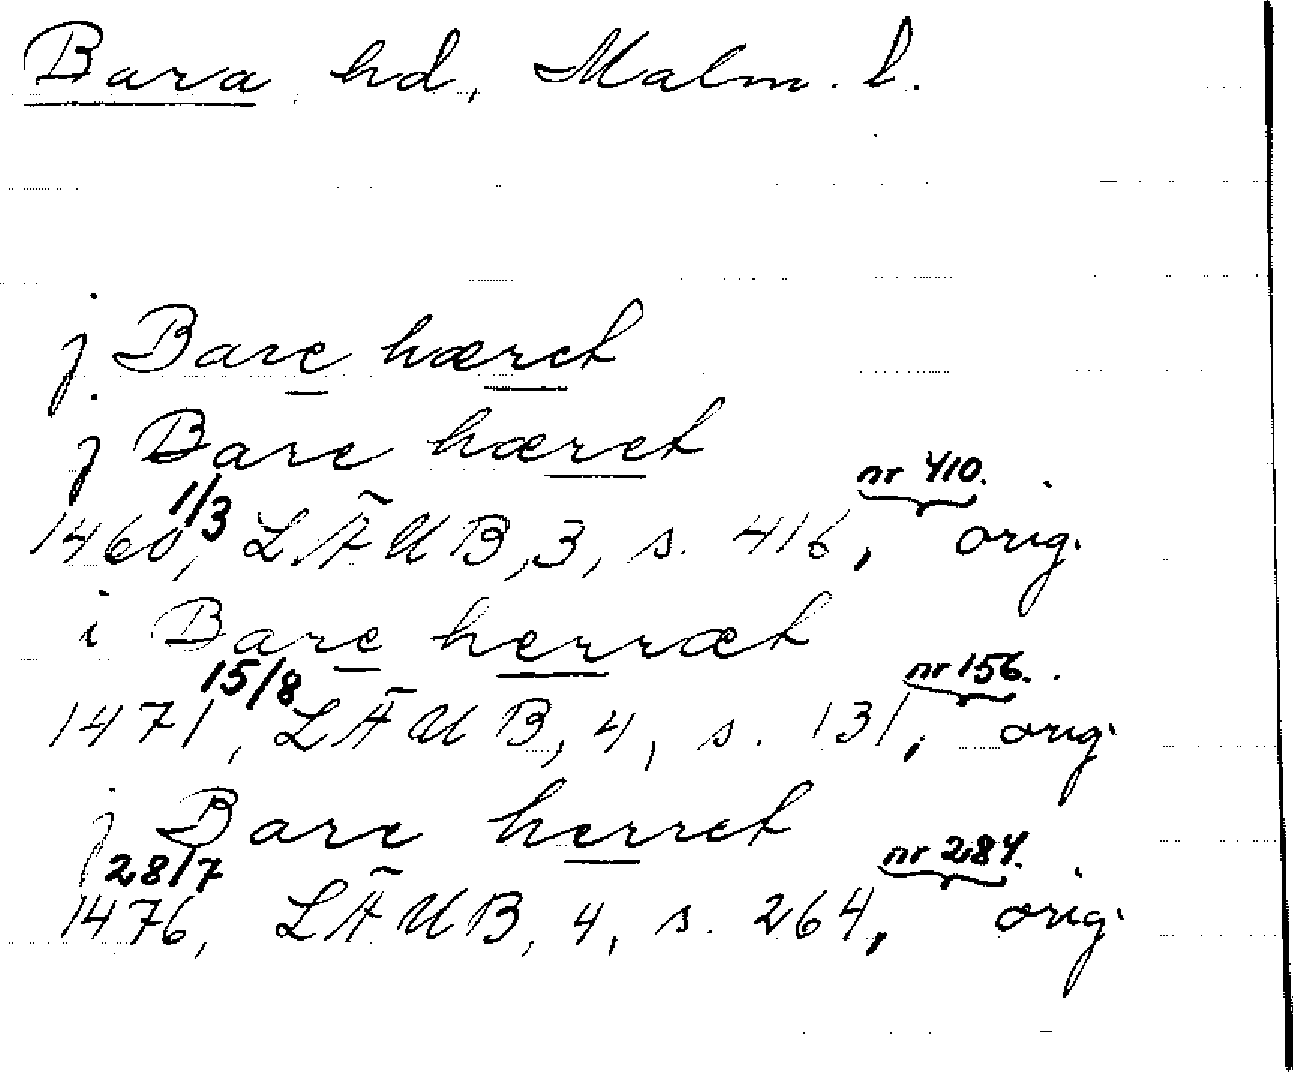 Bara hd, Malm. l.
j Bare hæret
j Bare hæret
1460 1/3, LÄUB, 3, s. 416, nr 410. orig.
i Bare herræt
1471 15/8, LÄUB, 4, s. 131, nr 156. orig.
j Bare herret
1476 28/7, LÄUB, 4, s. 264, nr 284. orig.